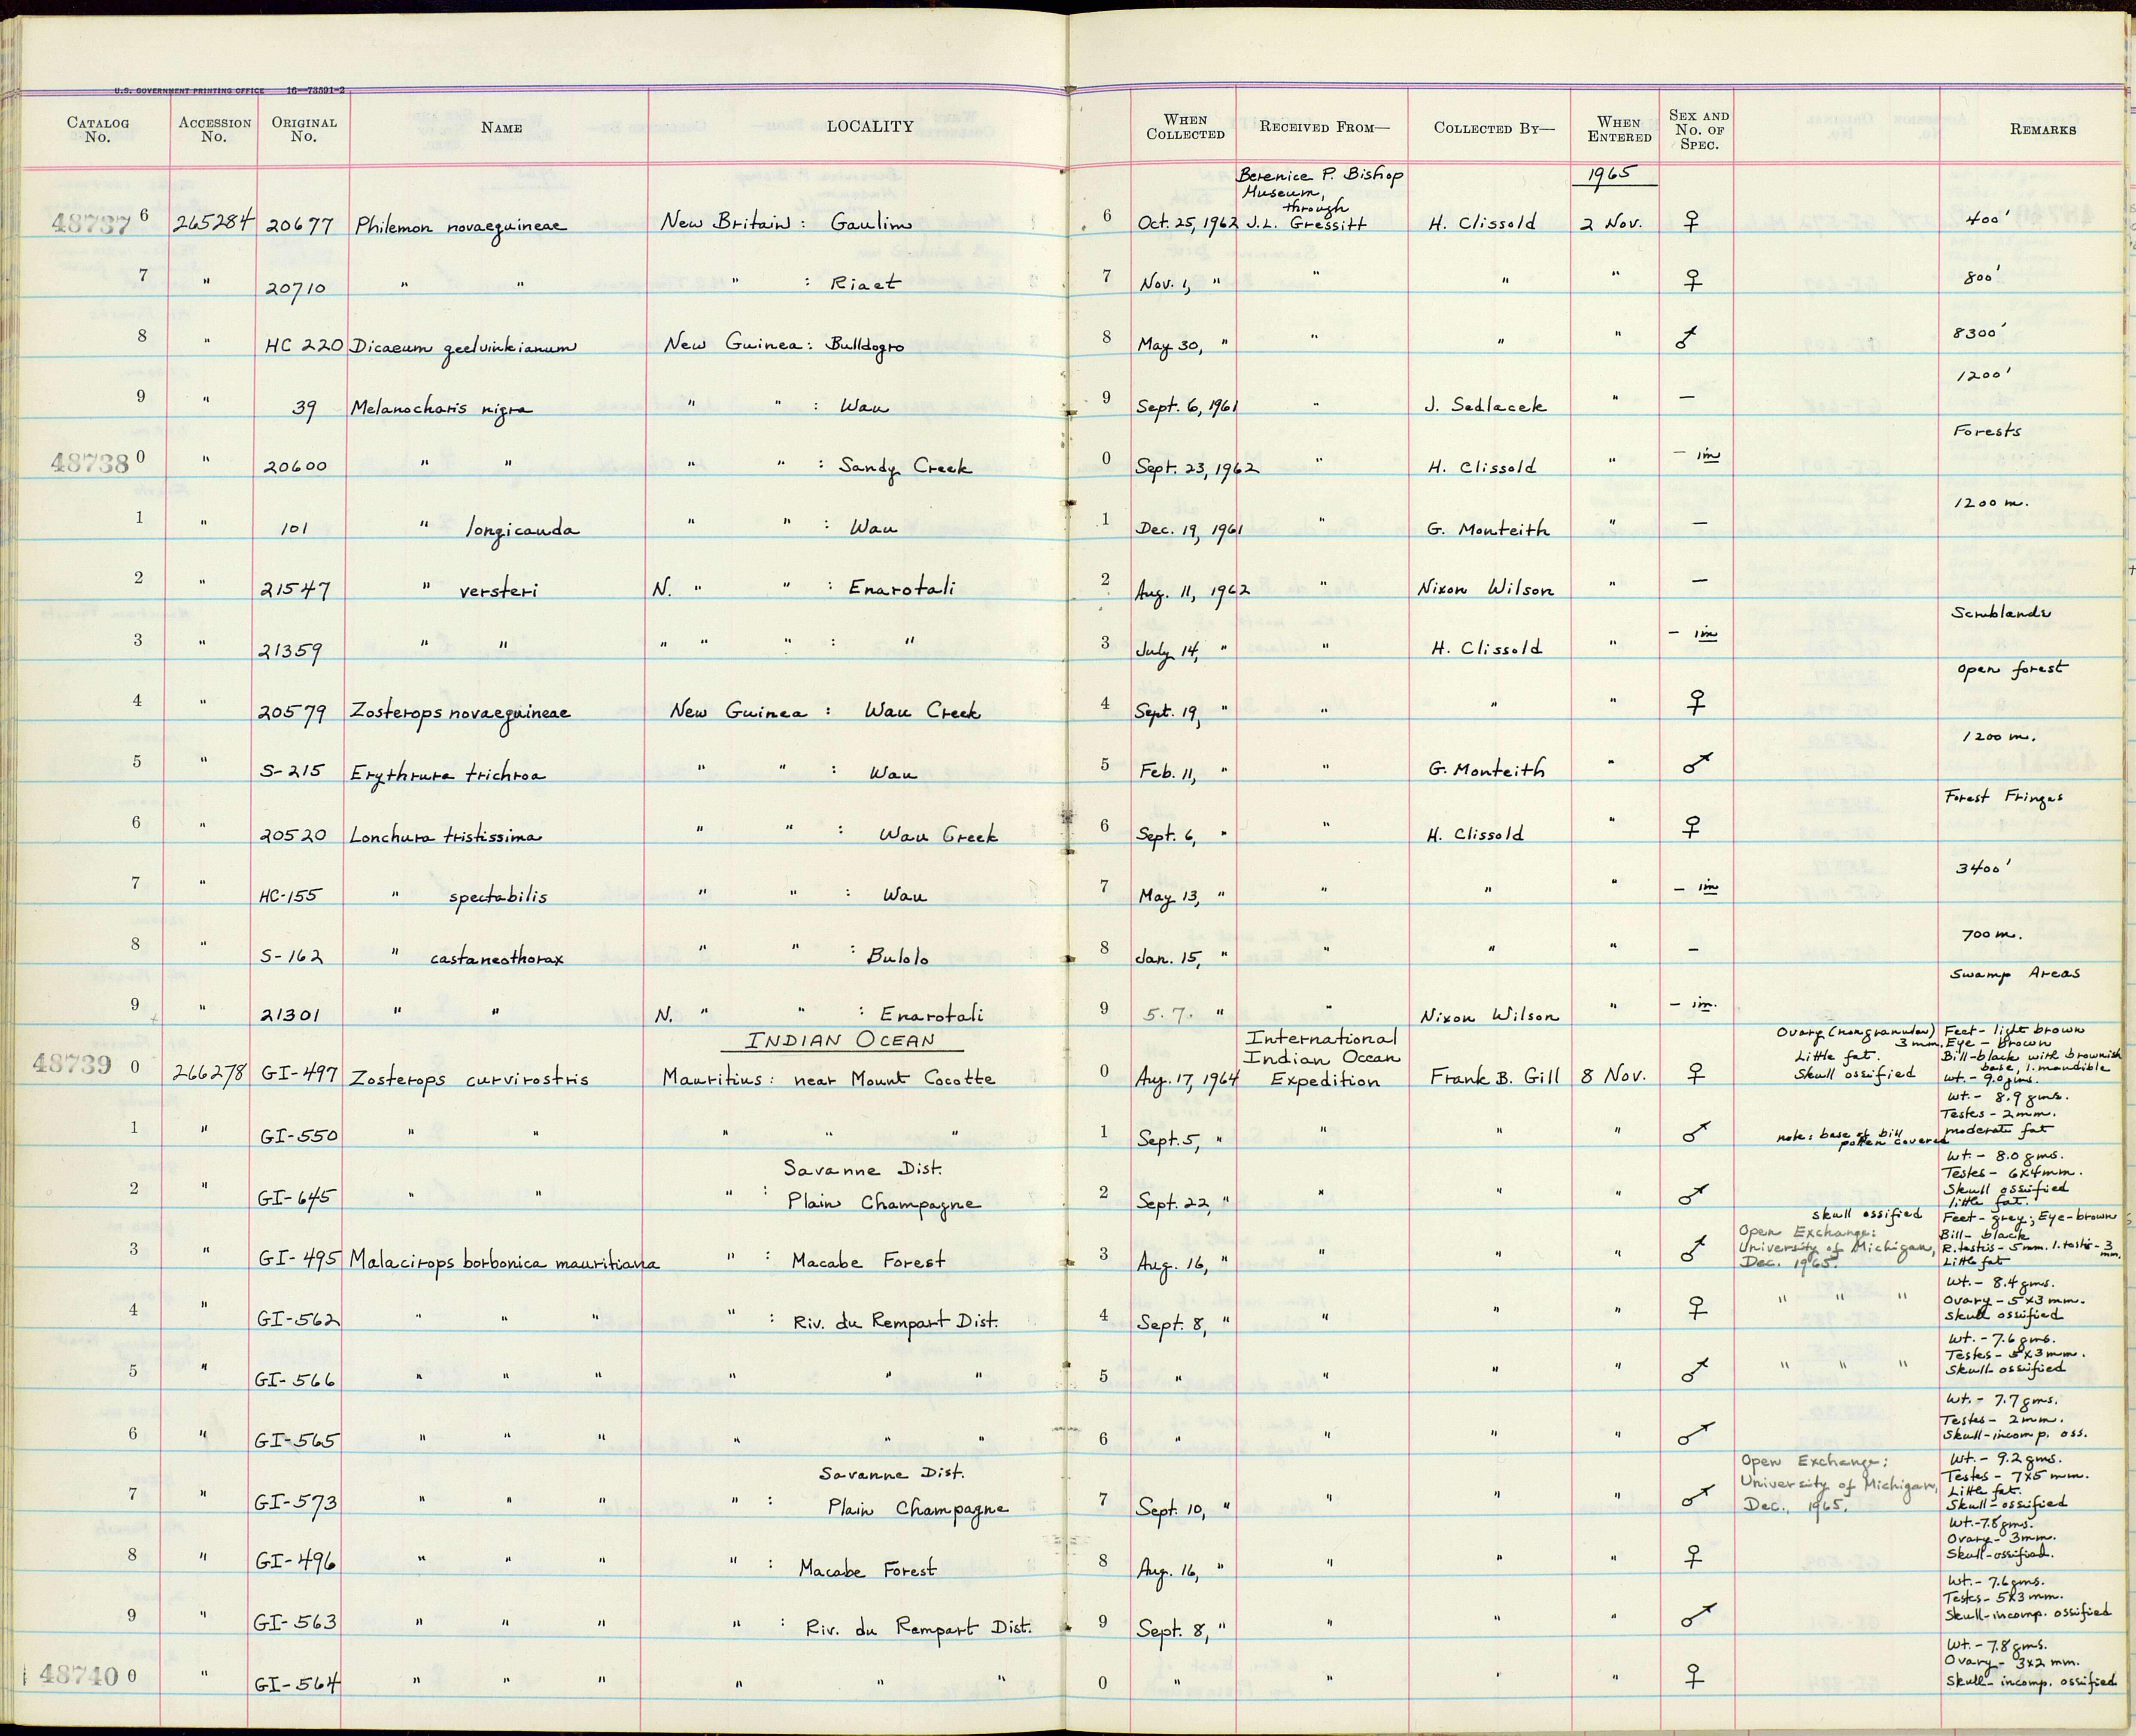 U.S. GOVERNMENT PRINTING OFFICE 16—73591-2
CATALOG No. ACCESSION No. ORIGINAL No. NAME LOCALITY WHEN COLLECTED RECEIVED FROM— COLLECTED BY— WHEN ENTERED SEX AND No. OF SPEC. REMARKS
Berenice P. Bishop Museum, through 1965
48737 6 265284 20677 Philemon novaeguineae New Britain : Gaulim 6 Oct. 25, 1962 J.L. Gressitt H. Clissold 2 Nov. ♀ 400'
7 " 20710 " " " : Riaet 7 Nov. 1, " " " " ♀ 800'
8 " HC 220 Dicaeum geelvinkianum New Guinea : Bulldogro 8 May 30, " " " " ♂ 8300'
9 " 39 Melanocharis nigra " " : Wau 9 Sept. 6, 1961 " J. Sedlacek " — 1200'
48738 0 " 20600 " " " " : Sandy Creek 0 Sept. 23, 1962 " H. Clissold " — im Forests
1 " 101 " longicauda " " : Wau 1 Dec. 19, 1961 " G. Monteith " — 1200 m.
2 " 21547 " versteri N. " " : Enarotali 2 Aug. 11, 1962 " Nixon Wilson " —
3 " 21359 " " " " " : " 3 July 14, " " H. Clissold " — im Scrublands
4 " 20579 Zosterops novaeguineae New Guinea : Wau Creek 4 Sept. 19, " " " " ♀ Open forest
5 " S-215 Erythrura trichroa " " : Wau 5 Feb. 11, " " G. Monteith " ♂ 1200 m.
6 " 20520 Lonchura tristissima " " : Wau Creek 6 Sept. 6, " " H. Clissold " ♀ Forest Fringes
7 " HC-155 " spectabilis " " : Wau 7 May 13, " " " " — im 3400'
8 " S-162 " castaneothorax " " : Bulolo 8 Jan. 15, " " " " — 700 m.
9 " 21301 " " N. " " : Enarotali 9 5. 7. " " Nixon Wilson " — im. Swamp Areas
INDIAN OCEAN
48739 0 266278 GI-497 Zosterops curvirostris Mauritius : near Mount Cocotte 0 Aug. 17, 1964 International Indian Ocean Expedition Frank B. Gill 8 Nov. ♀ Ovary (nongranular) 3 mm. Little fat. Skull ossified Feet - light brown Eye - brown Bill - black with brownish base, l. mandible wt. - 9.0 gms.
1 " GI-550 " " " " " 1 Sept. 5, " " " " ♂ note: base of bill pollen covered Wt. - 8.9 gms. Testes - 2mm. moderate fat
2 " GI-645 " " " : Savanne Dist. Plain Champagne 2 Sept. 22, " " " " ♂ Wt. - 8.0 gms. Testes - 6x4mm. Skull ossified little fat.
3 " GI-495 Malacirops borbonica mauritiana " : Macabe Forest 3 Aug. 16, " " " " ♂ skull ossified Open Exchange: University of Michigan, Dec. 1965. Feet - grey; Eye - brown Bill - black R. testis - 5mm. l. testis - 3 mm. Little fat
4 " GI-562 " " " " : Riv. du Rempart Dist. 4 Sept. 8, " " " " ♀ " " " Wt. - 8.4 gms. Ovary - 5x3mm. Skull ossified
5 " GI-566 " " " " " " 5 " " " " ♂ " " " Wt. - 7.6 gms. Testes - 5x3mm. Skull ossified
6 " GI-565 " " " " " " 6 " " " " ♂ Wt. - 7.7 gms. Testes - 2mm. Skull - incomp. oss.
7 " GI-573 " " " " : Savanne Dist. Plain Champagne 7 Sept. 10, " " " " ♂ Open Exchange: University of Michigan, Dec., 1965. Wt. - 9.2 gms. Testes - 7x5 mm. Little fat. Skull - ossified
8 " GI-496 " " " " : Macabe Forest 8 Aug. 16, " " " " ♀ Wt. - 7.8 gms. Ovary - 3mm. Skull - ossified.
9 " GI-563 " " " " : Riv. du Rempart Dist. 9 Sept. 8, " " " " ♂ Wt. - 7.6 gms. Testes - 5x3mm. Skull - incomp. ossified
48740 0 " GI-564 " " " " " " 0 " " " " ♀ Wt. - 7.8 gms. Ovary - 3x2 mm. Skull - incomp. ossified